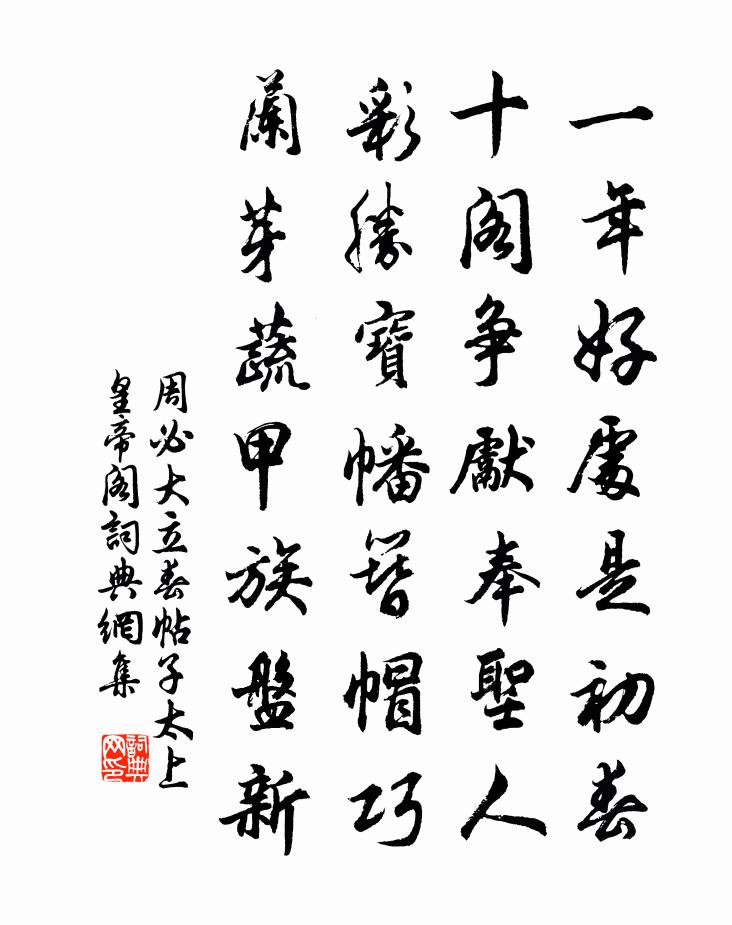 一年好處是初春
十閣争獻奉聖人
彩勝寶幡簪帽巧
蘭芽蔬甲簇盤新
周必大立春帖子太上
皇帝閣詞典網集
詞典
网印